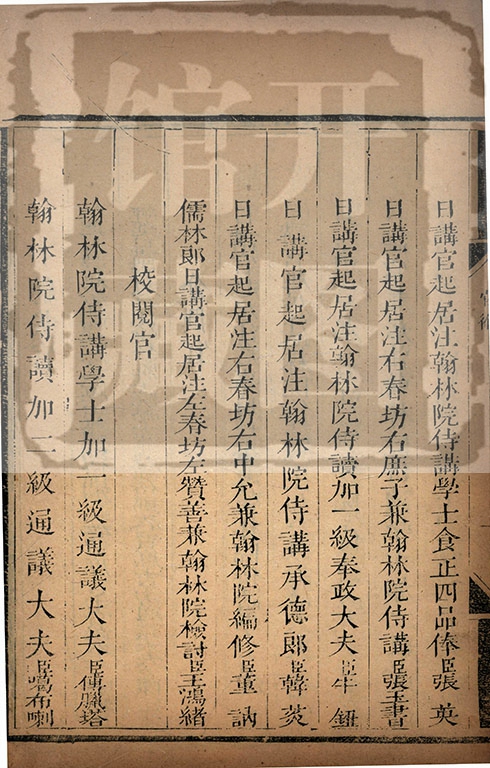 日講官起居注翰林院侍講學士食正四品俸臣張英
日講官起居注右春坊右庶子兼翰林院侍講臣張玉書
日講官起居注翰林院侍讀加一級奉政大夫臣牛鈕
日講官起居注翰林院侍講承德郎臣韓菼
日講官起居注右春坊右中允兼翰林院編修臣董訥
儒林郎日講官起居注左春坊左贊善兼翰林院檢討臣王鴻緒
校閱官
翰林院侍講學士加一級通議大夫臣傅臘塔
翰林院侍讀加二級通議大夫臣噶布喇
开
馆